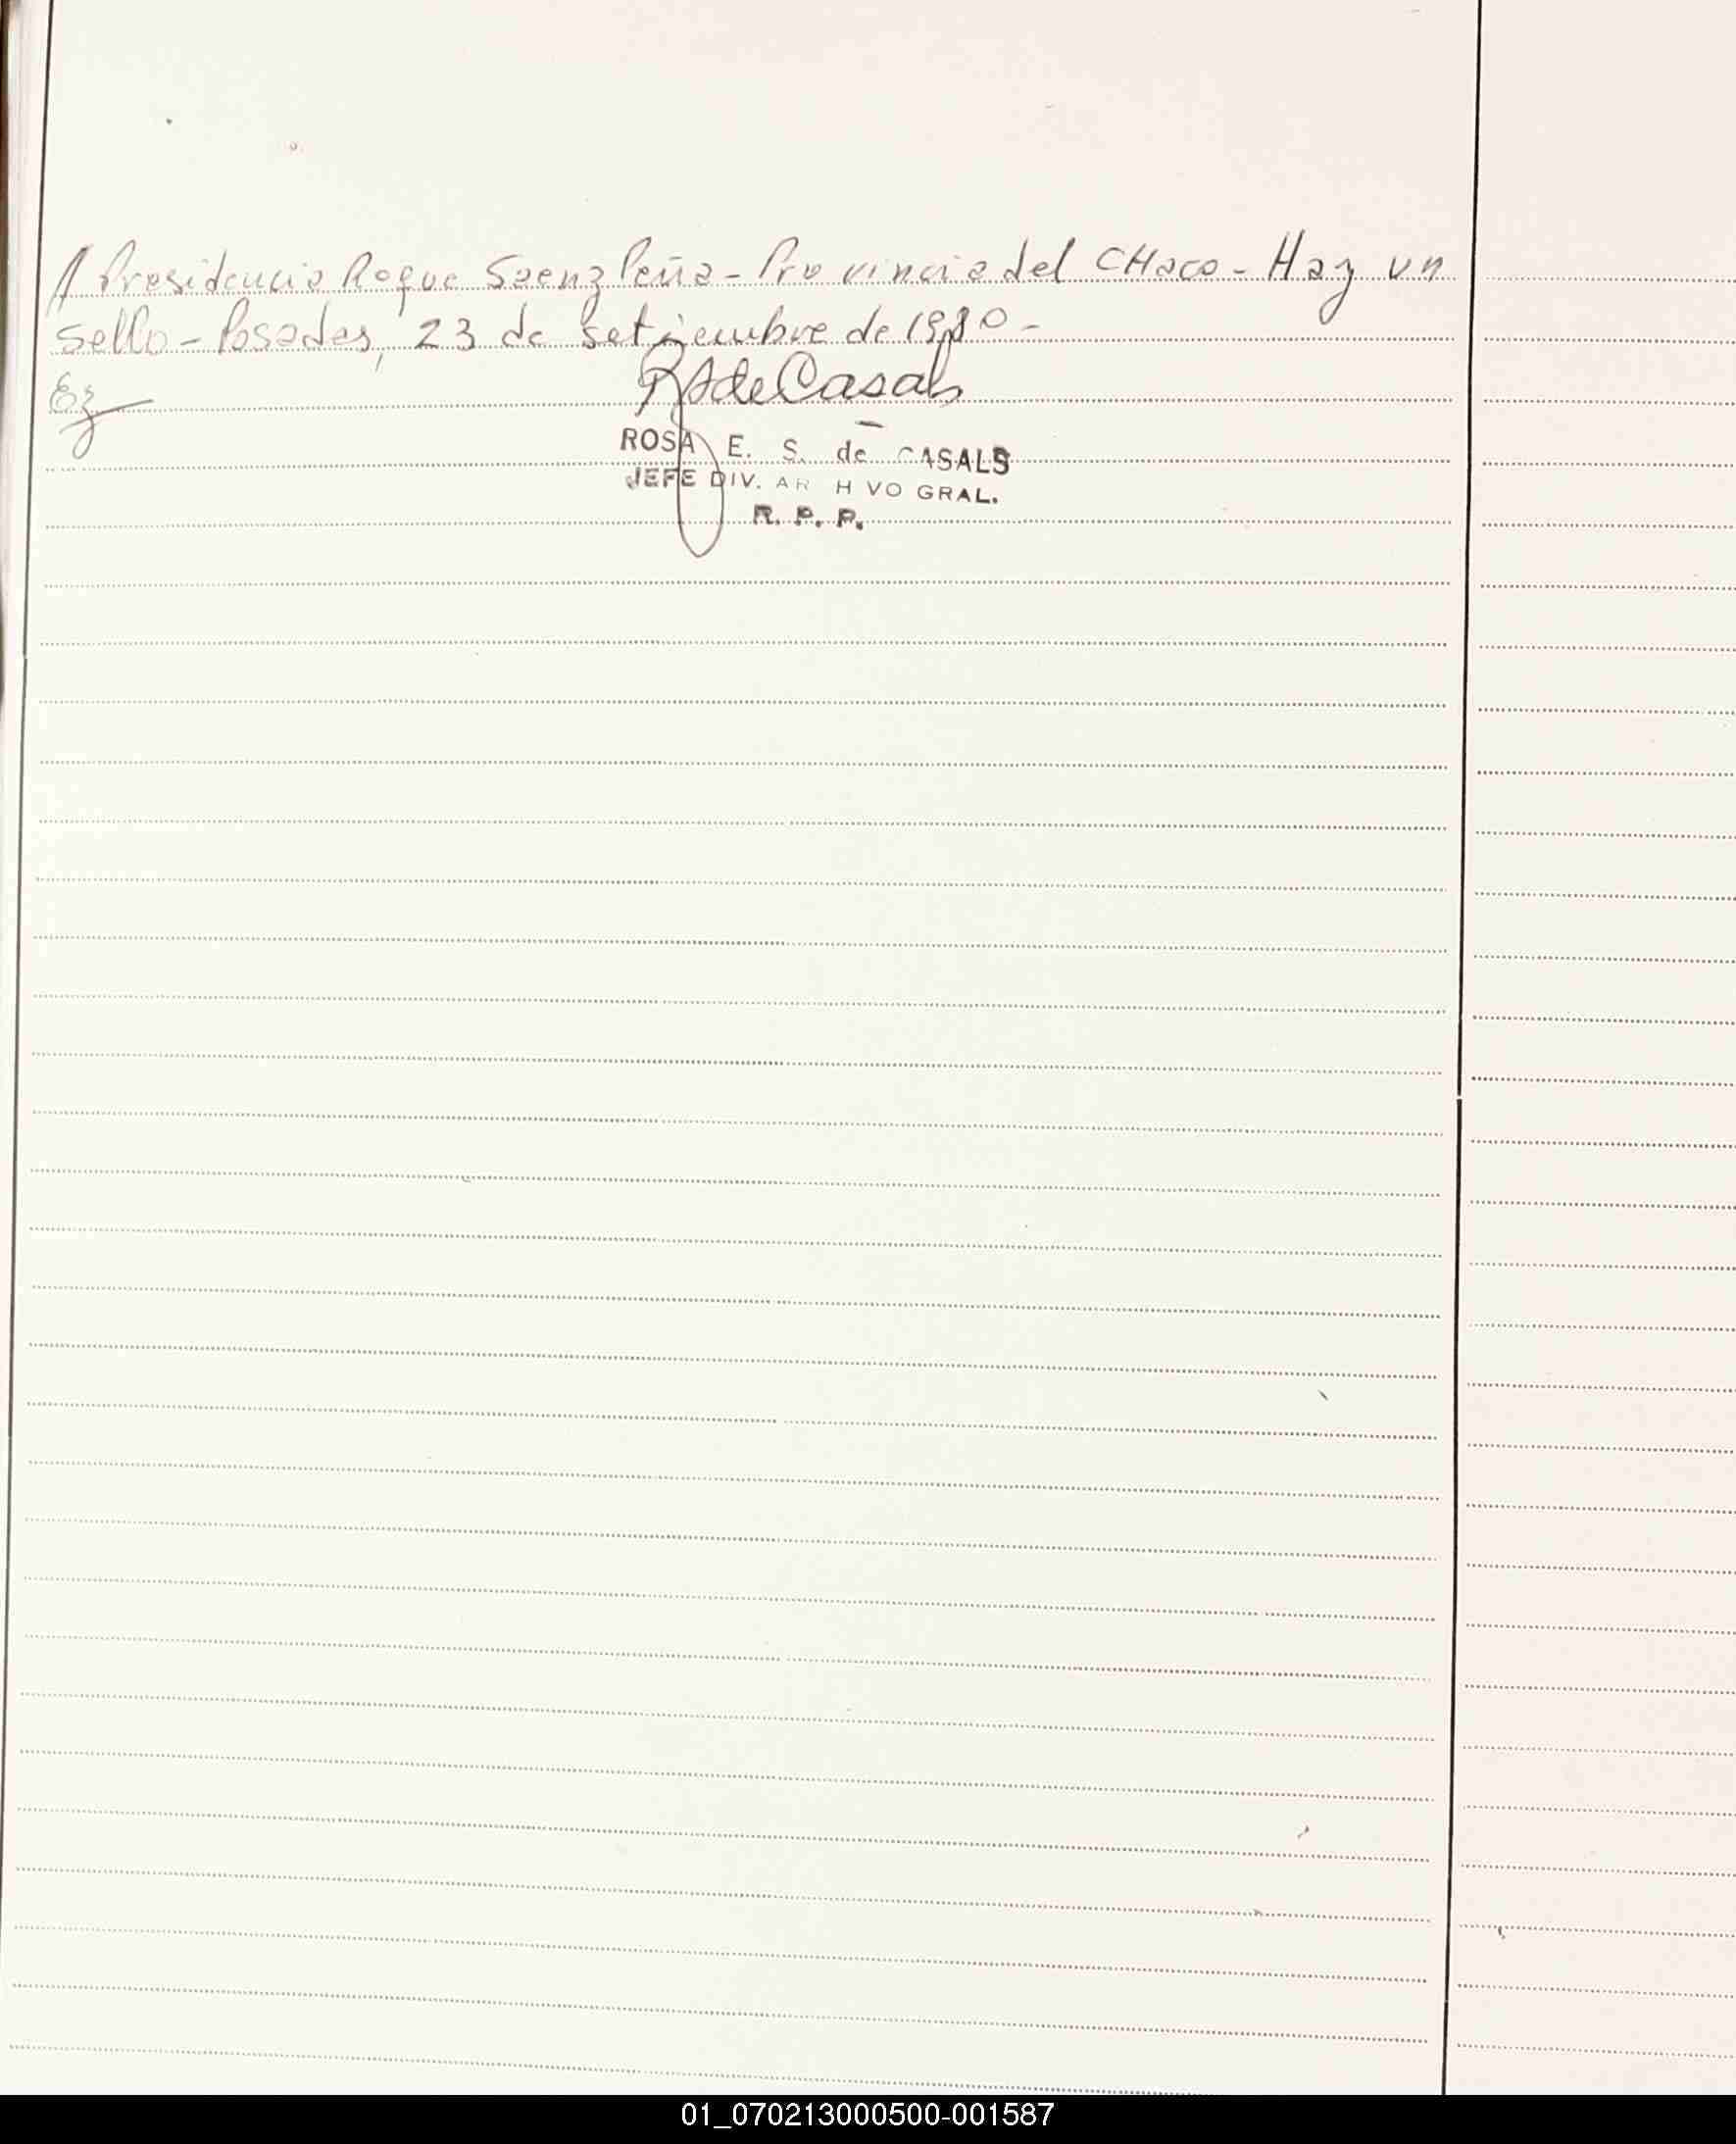 // Presidencia Roque Saenz Peña - Provincia del CHaco - Hay un
Sello - Posadas, 23 de setiembre de 1980 -
RSdeCasals
ROSA E. S. de CASALS
JEFE DIV. AR H VO GRAL.
R. P. P.
01_070213000500-001587